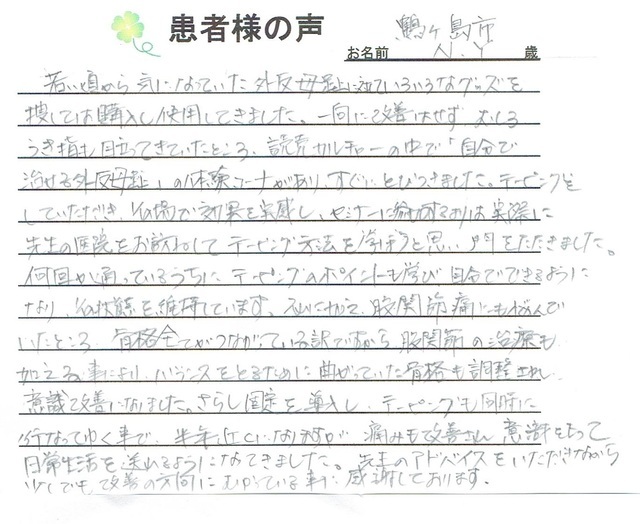 患者様の声
お名前 鶴ヶ島市 N.Y 歳
若い頃から気になっていた外反母趾に対していろいろなグッズを
捜しては購入し使用してきました。一向に改善はせず、むしろ
うき指も目立ってきていたところ、読売カルチャーの中で「自分で
治せる外反母趾」の体験コーナーがあり、すぐにとびつきました。テーピングを
していただき、その場で効果を実感し、セミナーに参加するよりは実際に
先生の医院をお訪ねしてテーピング方法を学ぼうと思い、門をたたきました。
何回か通っているうちに、テーピングのポイントも学び自分でできるように
なり、その状態を維持しています。それに加えて、股関節痛にも悩んで
いたところ、骨格全てがつながっている訳ですから、股関節の治療も
加える事により、バランスをとるために曲がっていた骨格も調整され
意識も改善になりました。さらし固定を導入し、テーピングも同時に
行なってゆく事で、半年近くになりますが 痛みも改善され
日常生活を送れるようになってきました。先生のアドバイスをいただきながら
少しでも改善の方向にむかっている事に感謝しております。